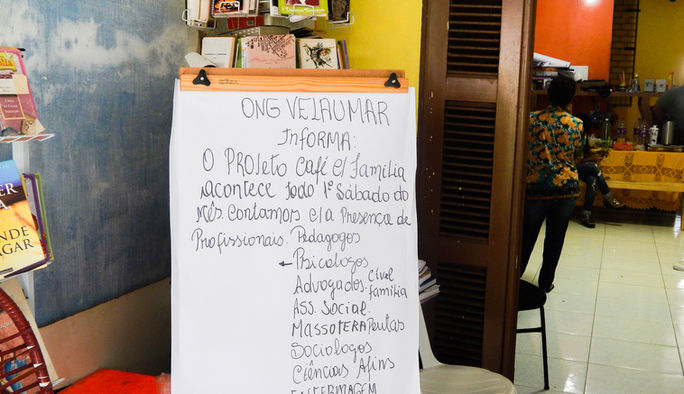 ONG VEIAUMAR
INFORMA:
O PROJETO Café c/ Familia
Acontece todo 1º Sábado do
Mês. Contamos c/a Presença de
Profissionais. Pedagogos
Psicologos
Advogados. Cível
família
ASS. Social.
MASSOTERAPeutas
Sociologos
Ciências Afins
ENFERMAGEM